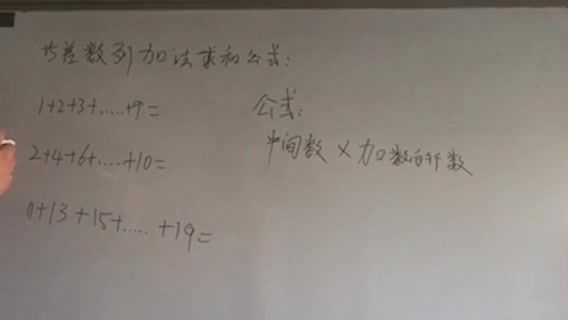 等差数列加法求和公式:
1+2+3+.....+9=
2+4+6+.....+10=
11+13+15+.....+19=
公式:
中间数×加数的个数